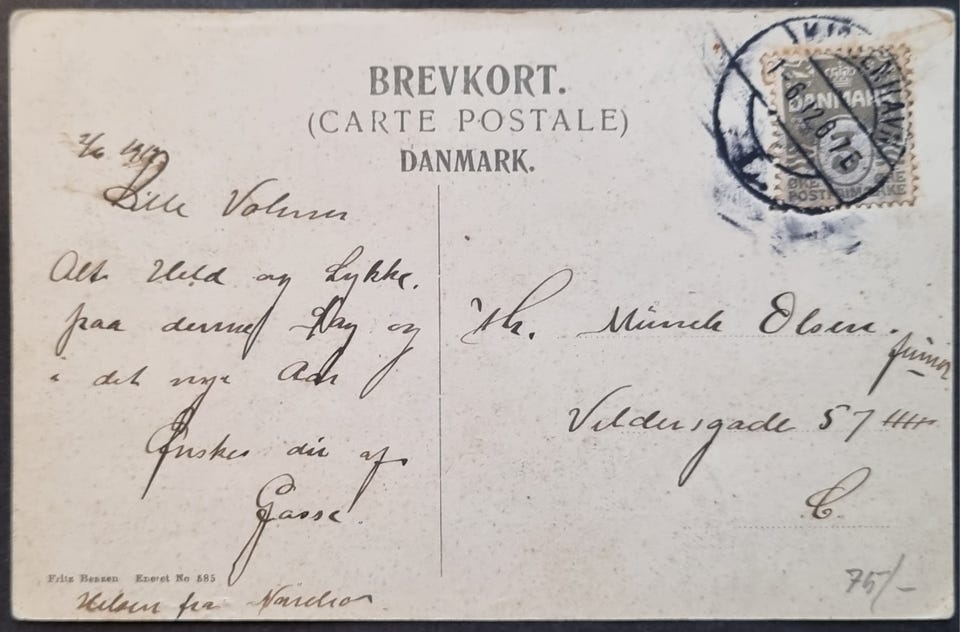 BREVKORT.
(CARTE POSTALE)
DANMARK.
KJØBENHAVN
1.6.12.6-7E
1
DANMARK
2/6 1912
Lille Volmer
Alt Held og Lykke,
paa denne Dag og
i det nye Aar
Ønskes dir af
Gasse.
Hr. Münck Olsen.
junior
Veldersgade 57
C.
Fritz Benzen Eneret No 585
Hilsen fra
75/-